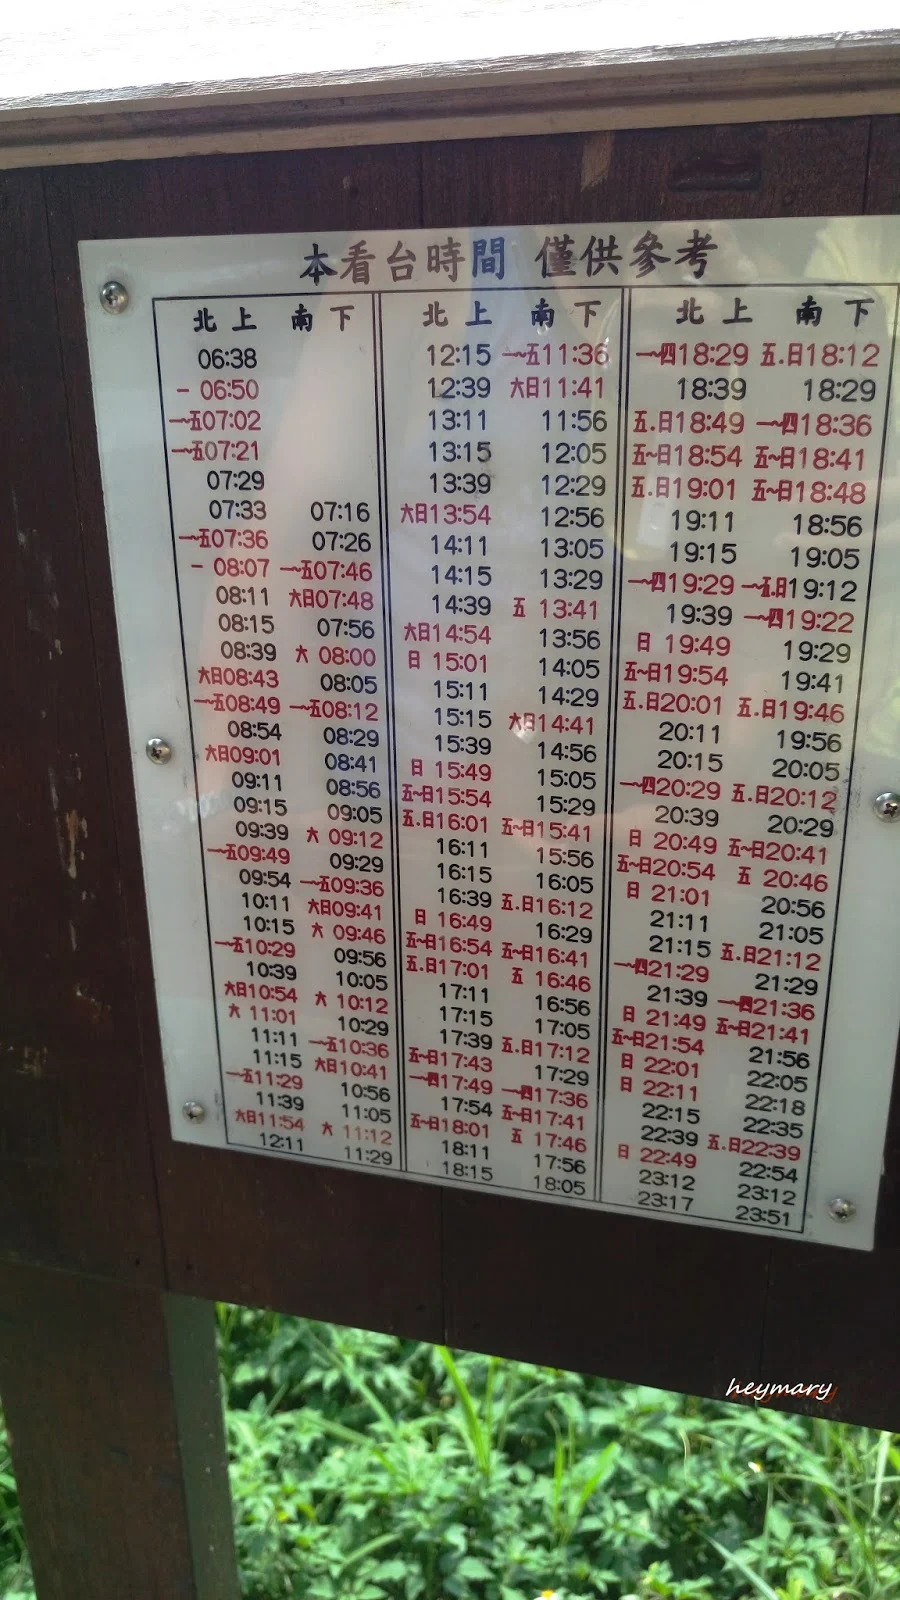 本看台時間 僅供參考
北上 南下
06:38
一 06:50
一~五07:02
一~五07:21
07:29
07:33 07:16
一~五07:36 07:26
一 08:07 一~五07:46
08:11 六日07:48
08:15 07:56
08:39 六 08:00
六日08:43 08:05
一~五08:49 一~五08:12
08:54 08:29
六日09:01 08:41
09:11 08:56
09:15 09:05
09:39 六 09:12
一~五09:49 09:29
09:54 一~五09:36
10:11 六日09:41
10:15 六 09:46
一~五10:29 09:56
10:39 10:05
六日10:54 六 10:12
六 11:01 10:29
11:11 一~五10:36
11:15 六日10:41
一~五11:29 10:56
11:39 11:05
六日11:54 六 11:12
12:11 11:29
北上 南下
12:15 一~五11:36
12:39 六日11:41
13:11 11:56
13:15 12:05
13:39 12:29
六日13:54 12:56
14:11 13:05
14:15 13:29
14:39 五 13:41
六日14:54 13:56
日 15:01 14:05
15:11 14:29
15:15 六日14:41
15:39 14:56
日 15:49 15:05
五~日15:54 15:29
五.日16:01 五~日15:41
16:11 15:56
16:15 16:05
16:39 五.日16:12
日 16:49 16:29
五~日16:54 五~日16:41
五.日17:01 五 16:46
17:11 16:56
17:15 17:05
17:39 五.日17:12
五~日17:43 17:29
一~四17:49 一~四17:36
17:54 五~日17:41
五~日18:01 五 17:46
18:11 17:56
18:15 18:05
北上 南下
一~四18:29 五.日18:12
18:39 18:29
五.日18:49 一~四18:36
五~日18:54 五~日18:41
五.日19:01 五~日18:48
19:11 18:56
19:15 19:05
一~四19:29 一~五.日19:12
19:39 一~四19:22
日 19:49 19:29
五~日19:54 19:41
五.日20:01 五.日19:46
20:11 19:56
20:15 20:05
一~四20:29 五.日20:12
20:39 20:29
日 20:49 五~日20:41
五~日20:54 五 20:46
日 21:01 20:56
21:11 21:05
21:15 五.日21:12
一~四21:29 21:29
21:39 一~四21:36
日 21:49 五~日21:41
五~日21:54 21:56
日 22:01 22:05
日 22:11 22:18
22:15 22:35
22:39 五.日22:39
日 22:49 22:54
23:12 23:12
23:17 23:51
heymary